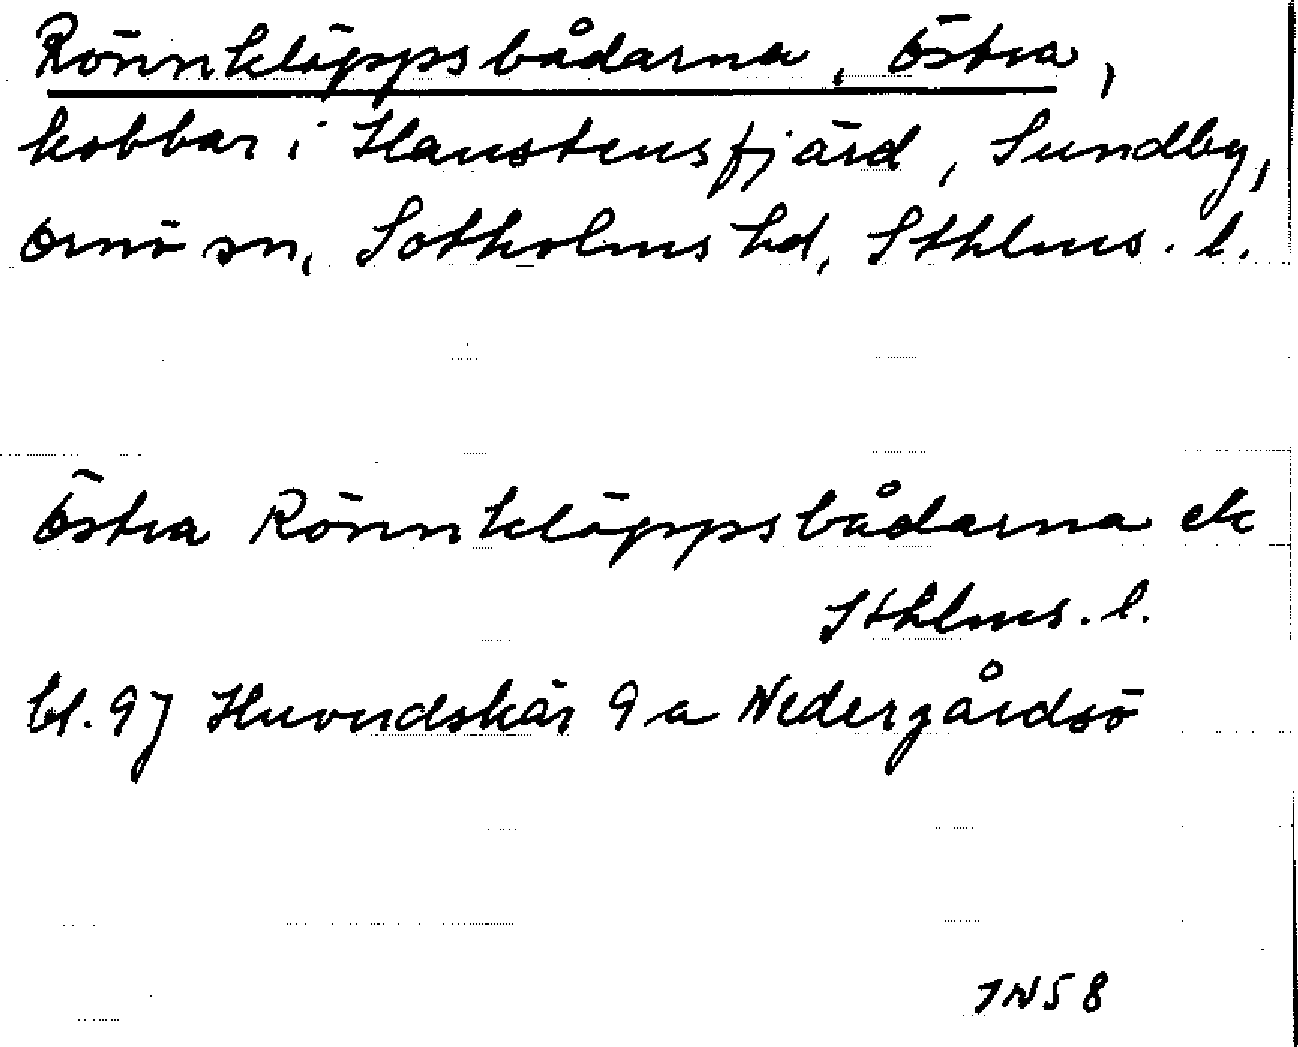 Rönnklöppsbådarna, Östra,
kobbar i Hanstensfjärd, Sundby,
Ornö sn, Sotholms hd, Sthlms. l.
Östra Rönnklöppsbådarna ek
Sthlms. l.
bl. 97 Huvudskär 9 a Nedergårdsö
JN58